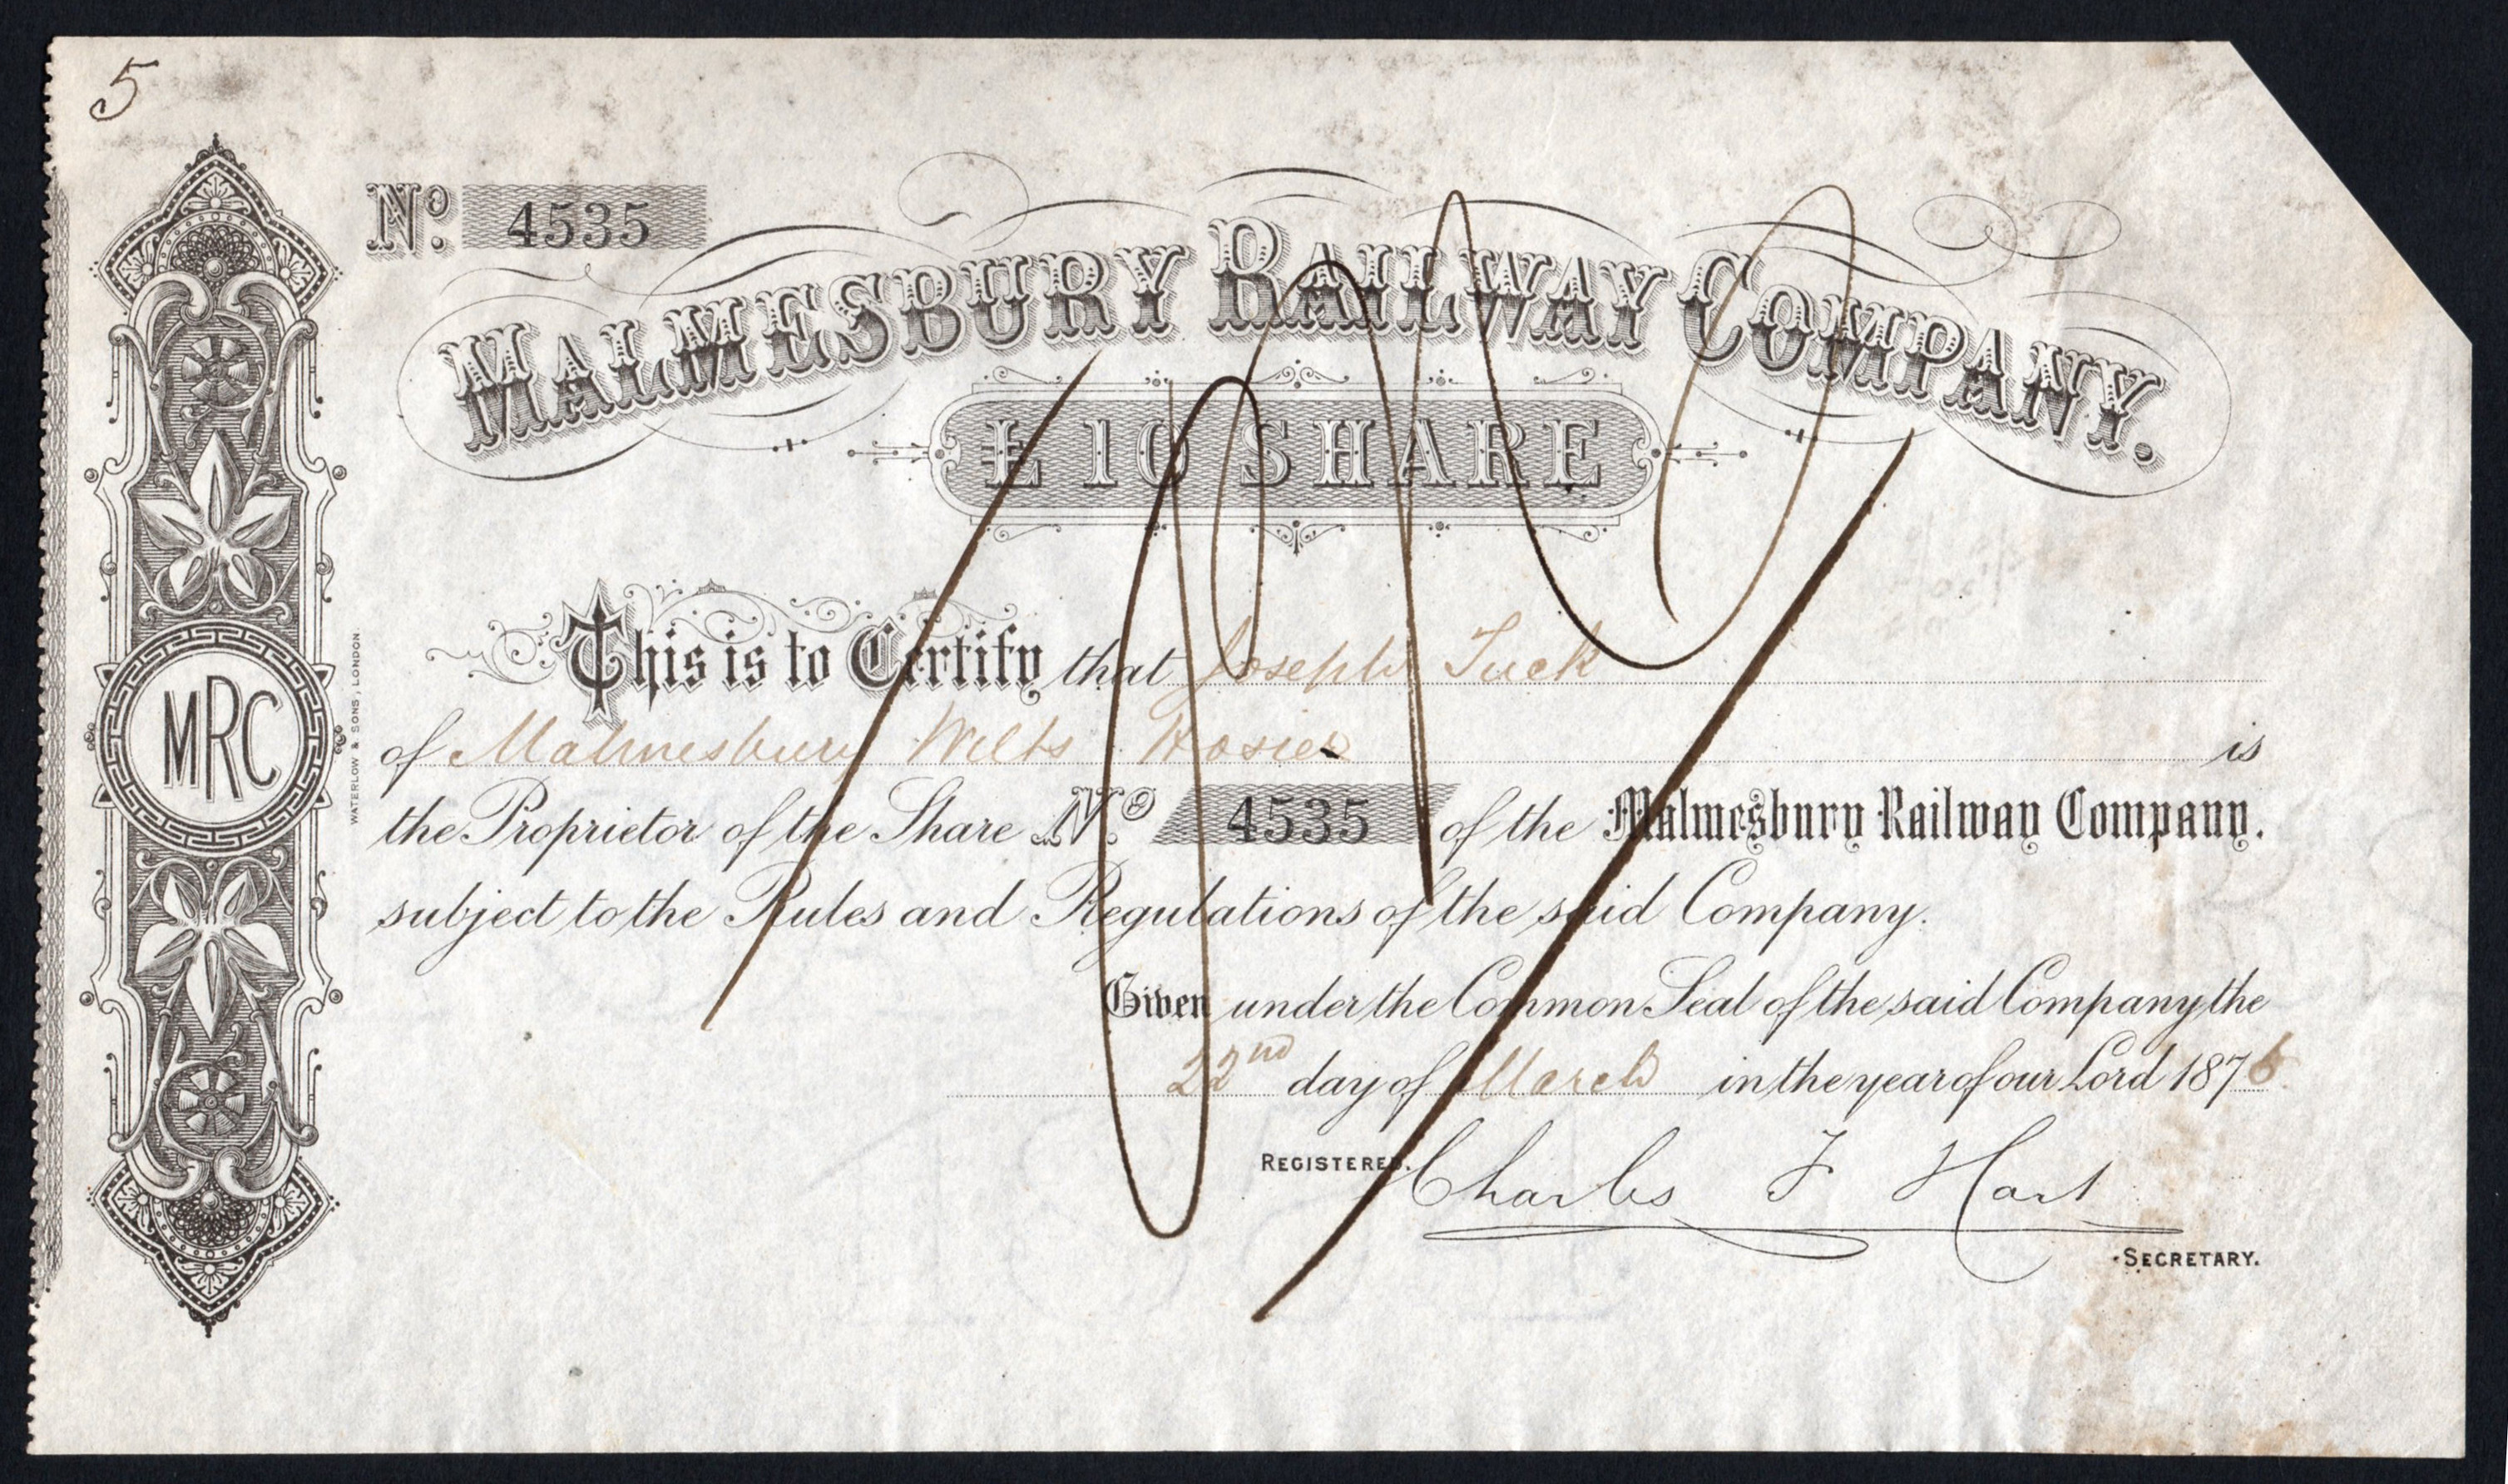 5
No. 4535
MALMESBURY RAILWAY COMPANY.
£10 SHARE
This is to Certify that Joseph Tuck
of Malmesbury Wilts Hosier is
the Proprietor of the Share No. 4535 of the Malmesbury Railway Company.
subject to the Rules and Regulations of the said Company.
Given under the Common Seal of the said Company the
22nd day of March in the year of our Lord 1876
REGISTERED. Charles F Hart
SECRETARY.
MRC
WATERLOW & SONS, LONDON.